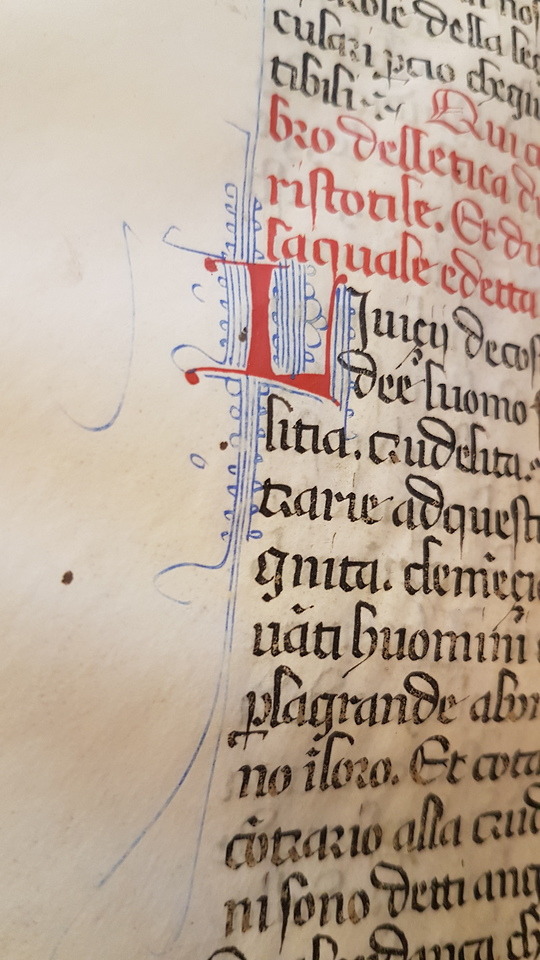 della
culari ꝑcio cheqn
tibili Qui
bro delletica di
ristotile. Et du
laquale edetta
L Iuicij decos
deē luomo
litia. crudelita.
trarie adquesti
gnita. clemēçia
uāti huomini
ꝑlagrande abon
no iloro. Et cota
cōtrario alla crud
ni sono detti ang